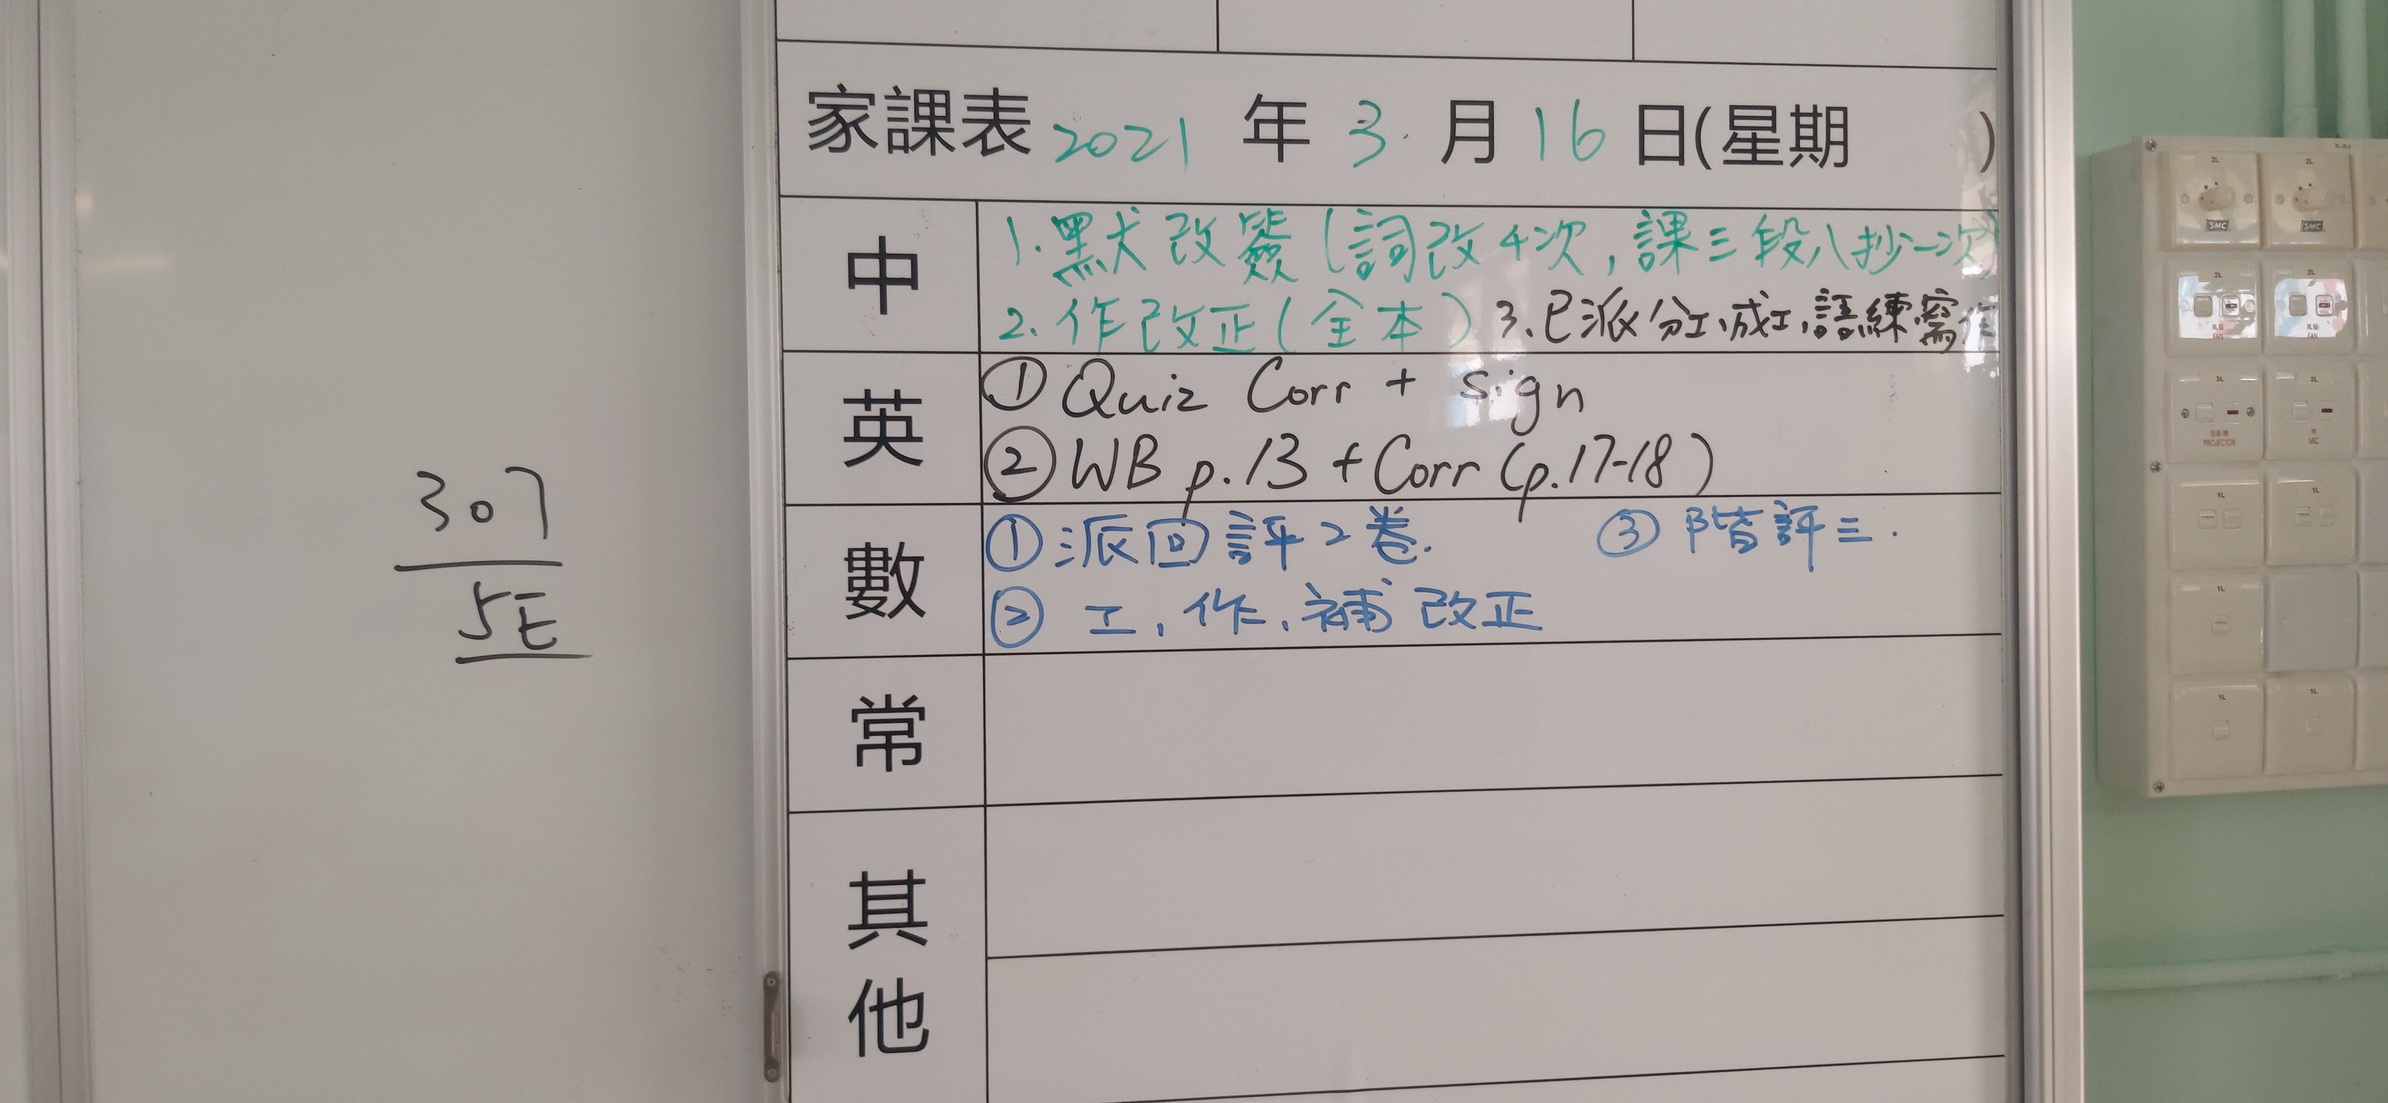 家課表 2021 年 3 月 16 日(星期　)
中
1. 默改簽(詞改4次,課三段八抄一次)
2. 作改正(全本) 3. 已派分工、成工、語練、寫作
英
① Quiz Corr + sign
② WB p.13 + Corr (p.17-18)
數
① 派回評2卷. ③ 階評三.
② 工, 作, 補 改正
常
其他
307
5E
2L
2L
SMC
SMC
2L
2L
FAN
FAN
2L
2L
PROJECTOR
MIC
1L
1L
1L
1L
1L